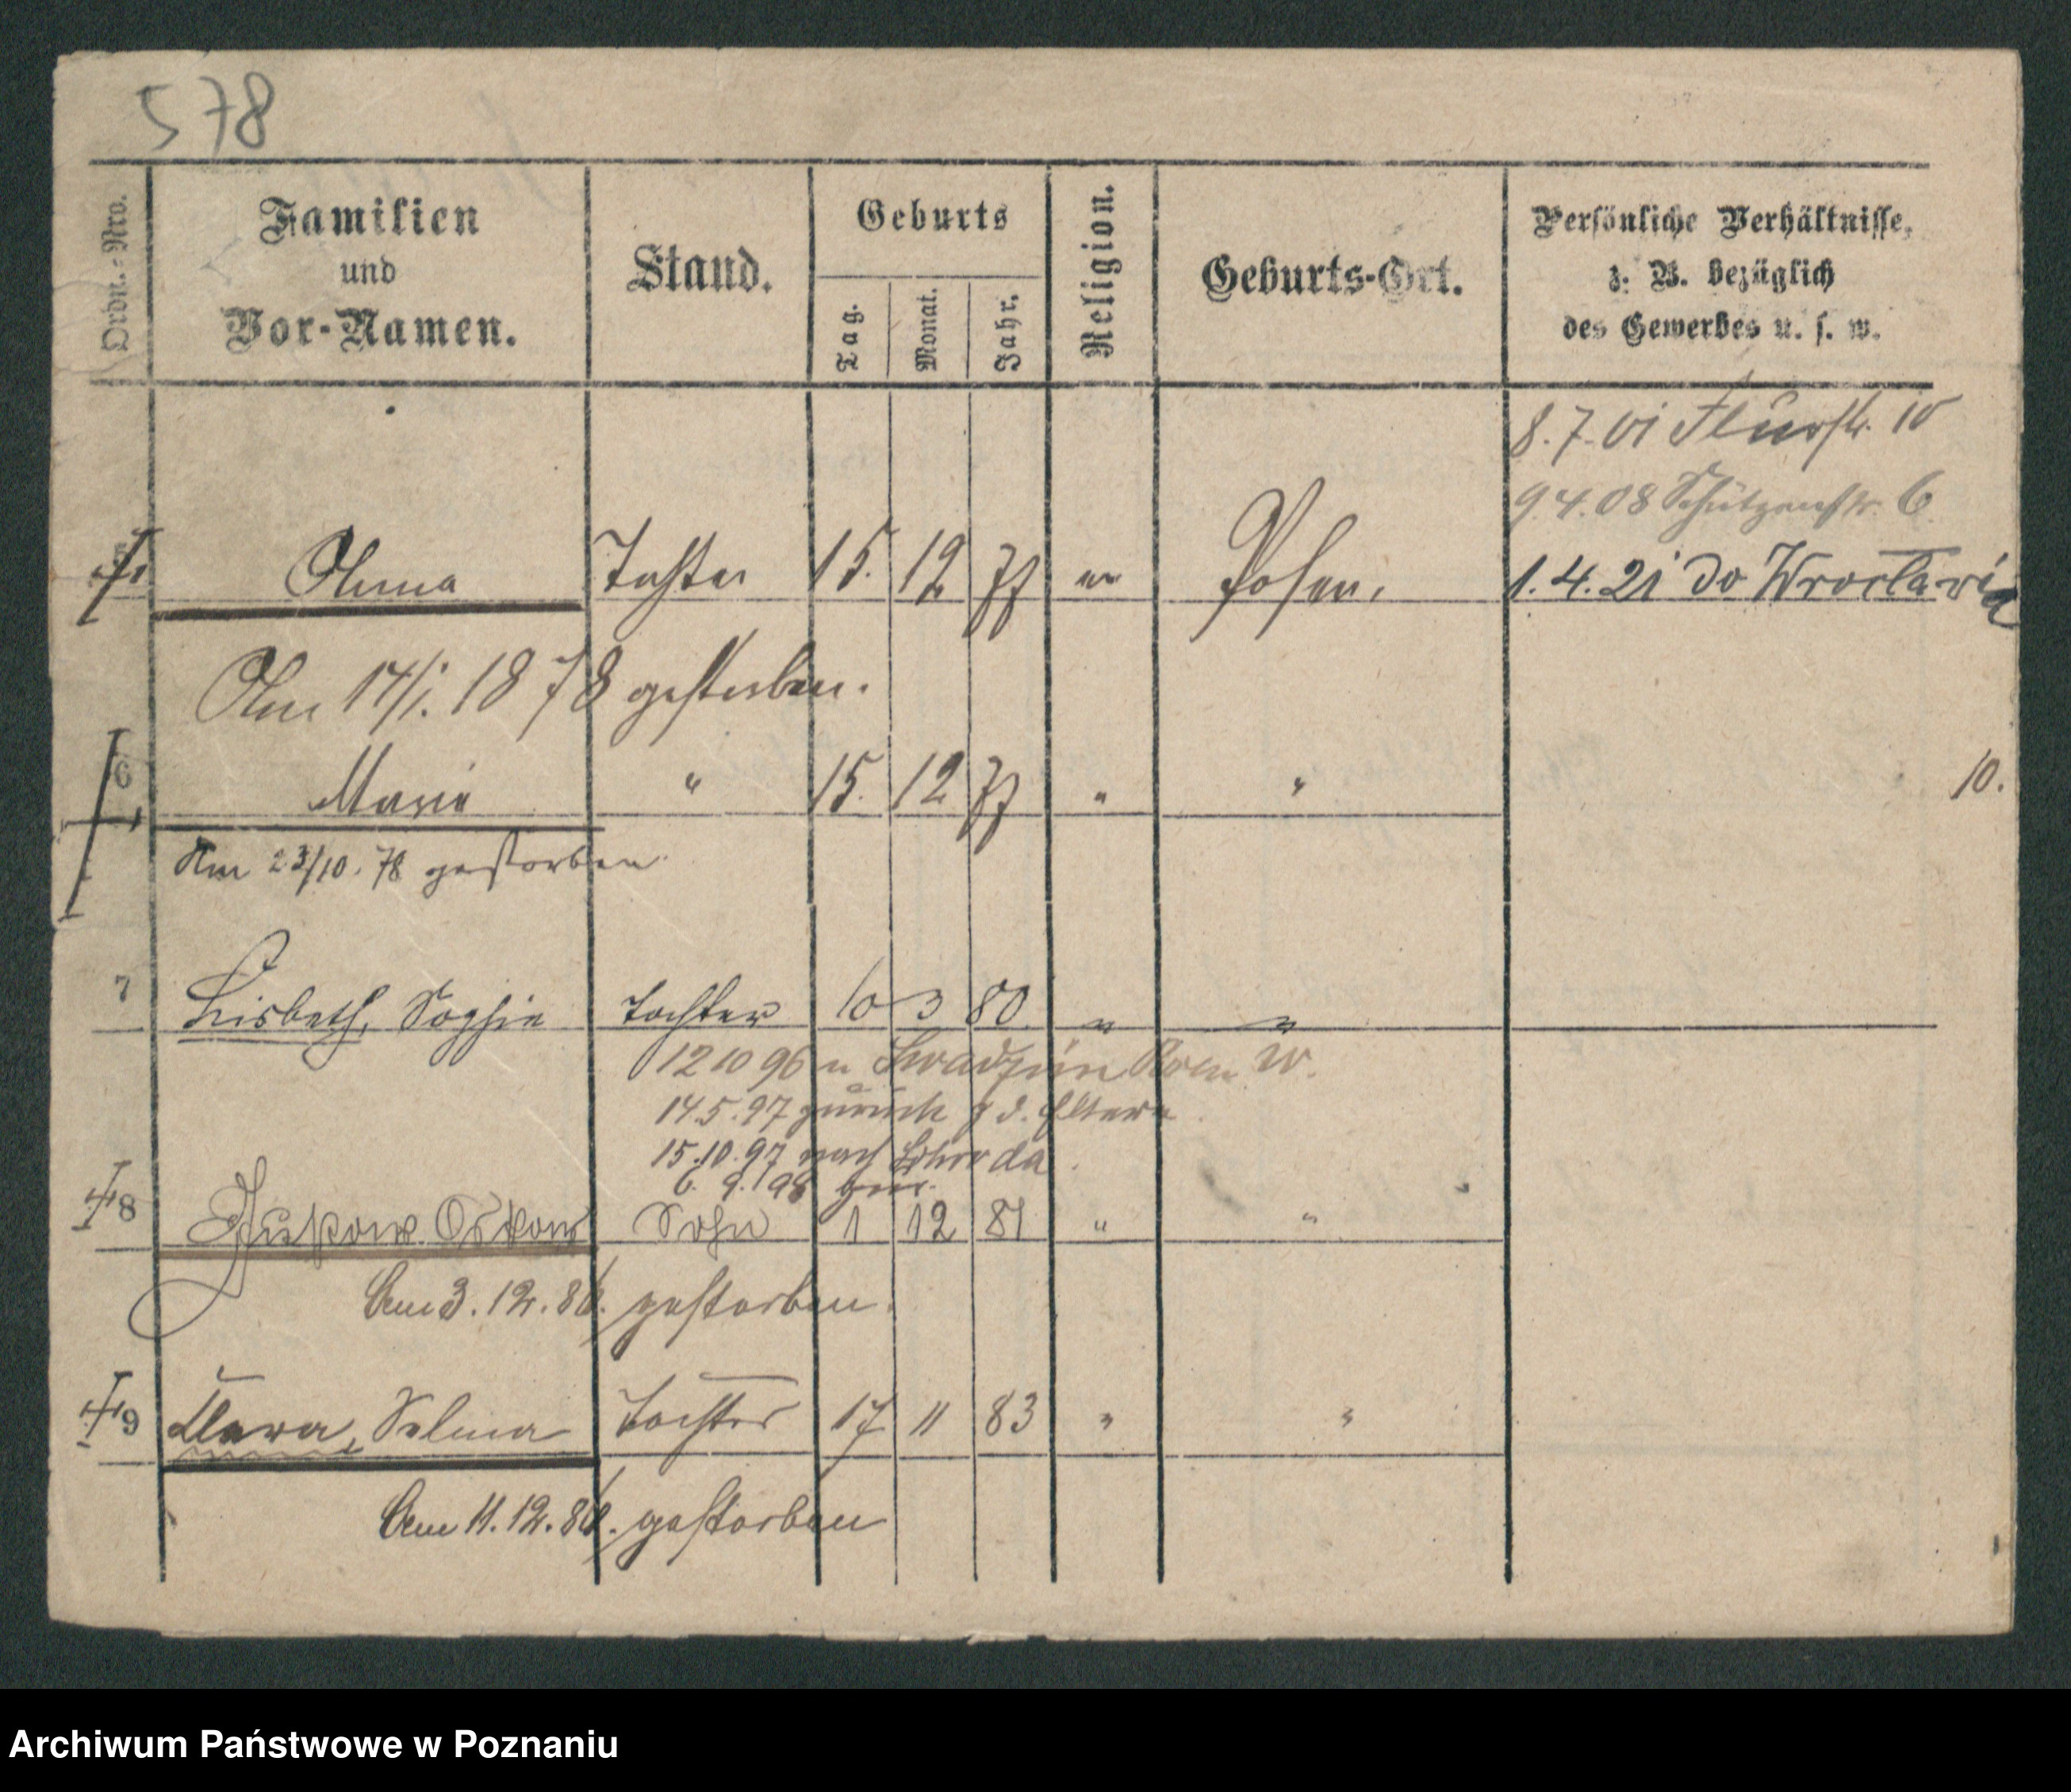 578
Ordn.-Nro.
Familien und Vor-Namen.
Stand.
Geburts
Tag.
Monat.
Jahr.
Religion.
Geburts-Ort.
Persönliche Verhältnisse,
z. B. bezüglich
des Gewerbes u. s. w.
8.7.01 Flurstr. 10
9.4.08 Schützenstr. 6
Anna Tochter 15. 12 77 ev Posen. 1.4.21 do Wrocławia
Am 17/1. 1878 gestorben.
6 Marie " 15. 12 77 " "
10.
Am 23/10. 78 gestorben.
7 Lisbeth, Sophie Tochter 10 3 80 " "
12 10 96 n
14.5.97 zurück z d. Eltern
15.10.97 nach
6. 9. 98 zur.
8 Oskar Sohn 1 12 81 " "
Am 3. 12. 86. gestorben.
9 Clara, Selma Tochter 17 11 83 " "
Am 11. 12. 86. gestorben
Archiwum Państwowe w Poznaniu